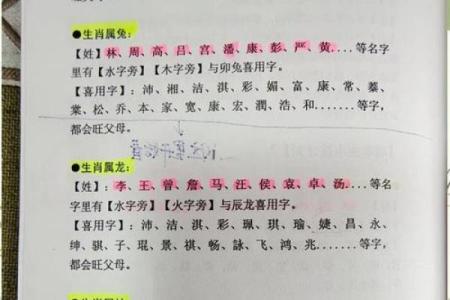 ●生肖属兔:
【姓】林、周、高、吕、宫、潘、康、彭、严、黄....等名字
里有【水字旁】【木字旁】与卯兔喜用字。
【喜用字】：沛、湘、洁、淇、彩、媚、富、康、常、蓁、
棠、松、乔、本、家、宽、康、宏、潤、浩、和.......等字，
都会旺父母。
●生肖属龙:
【姓】：李、王、曾、詹、马、汪、侯、袁、卓、汤,...等名
字里有【水字旁】【火字旁】与辰龙喜用字。
【喜用字】：沛、洁、淇、彩、珮、琪、瑜、婕、昌、永、
绅、骐、子、琨、景、棋、畅、詠、飞、鸿、兆.......等字，
都会旺父母。